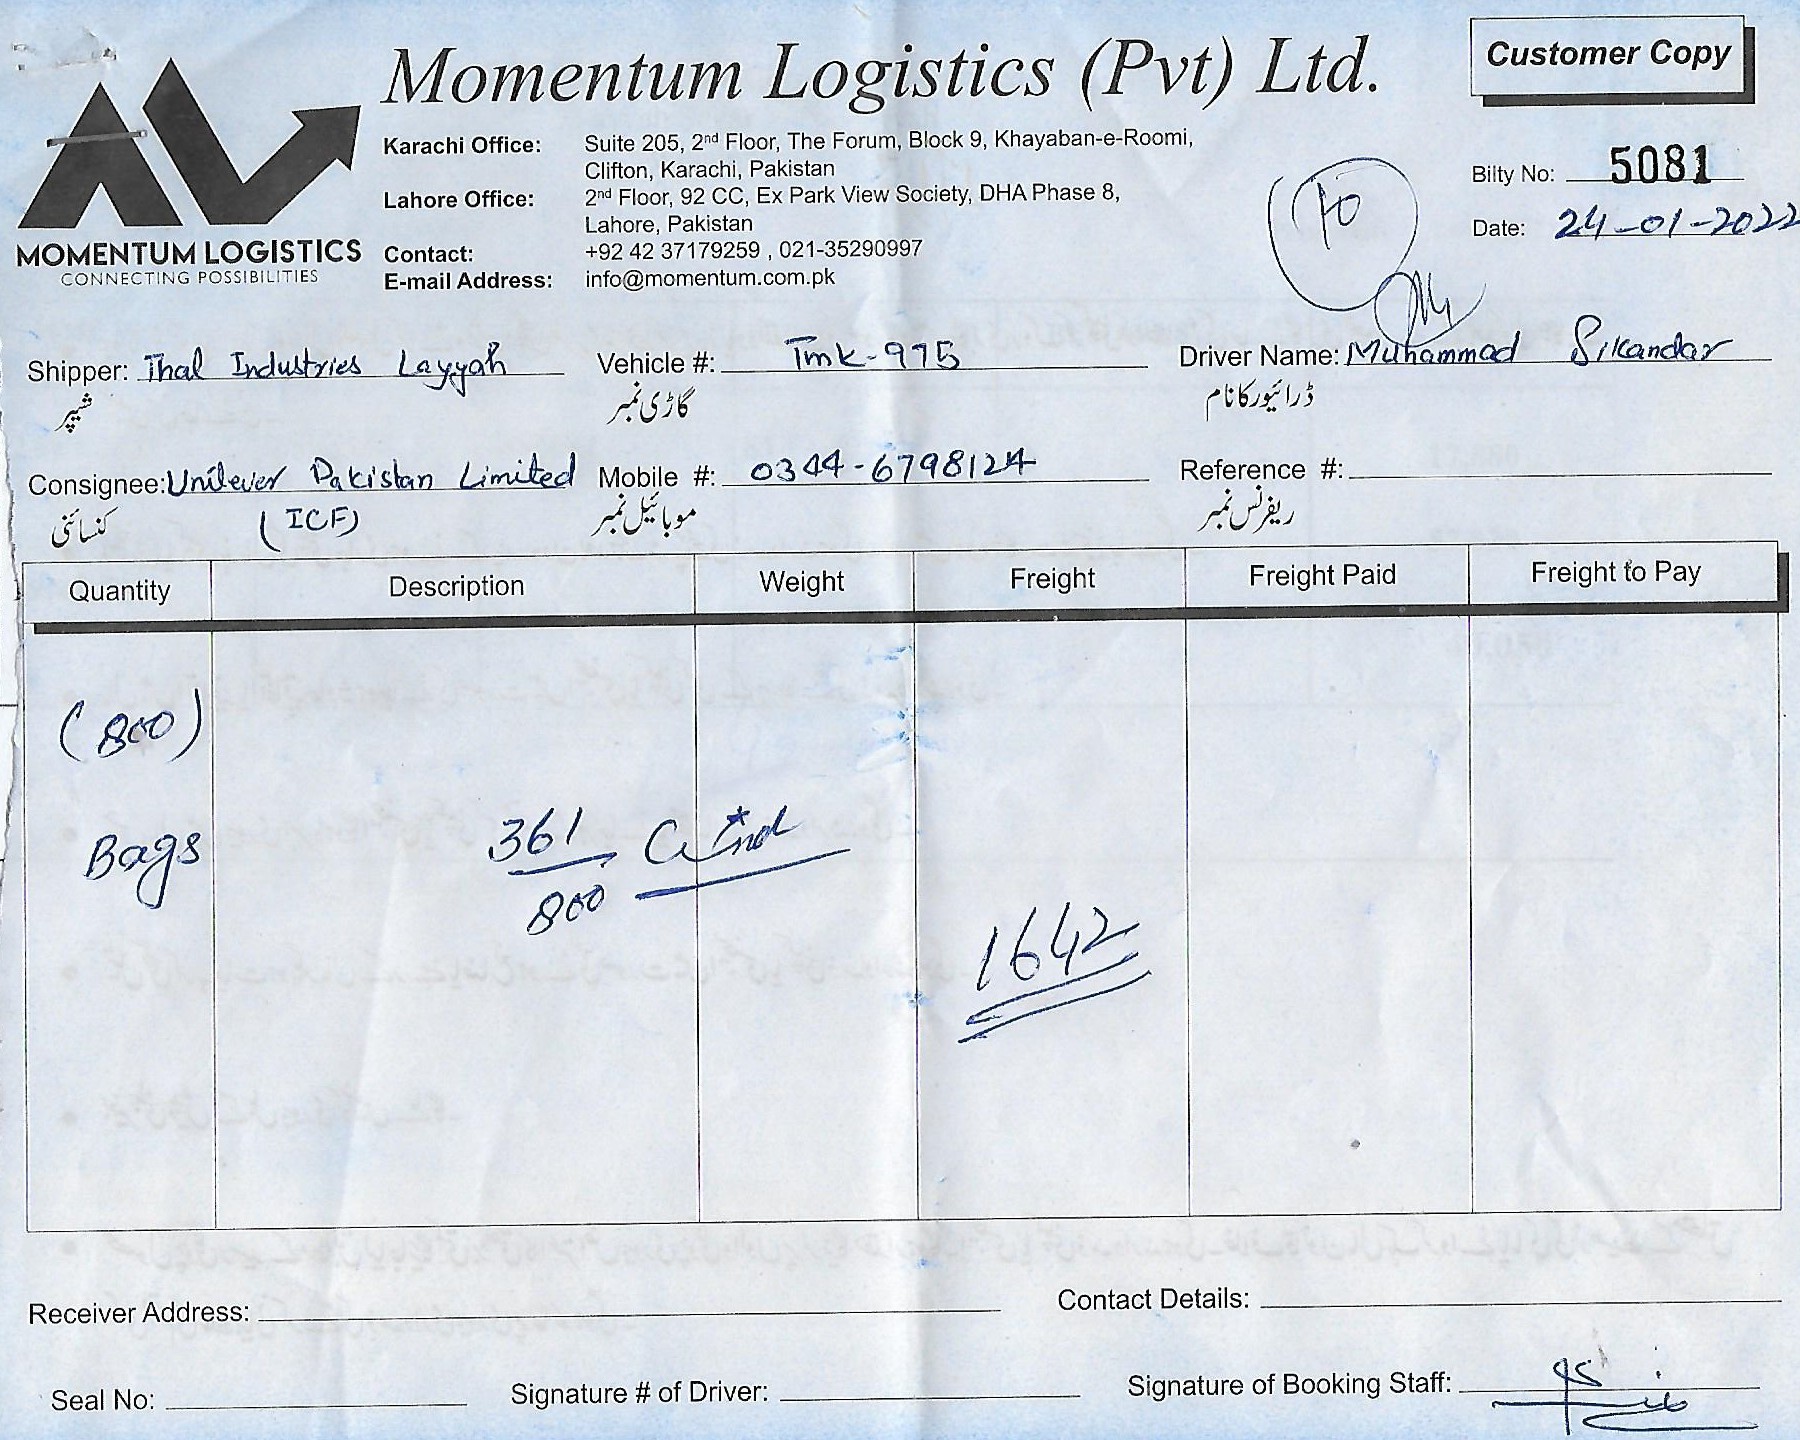 Momentum Logistics (Pvt) Ltd.
Customer Copy
MOMENTUM LOGISTICS
CONNECTING POSSIBILITIES
Karachi Office: Suite 205, 2nd Floor, The Forum, Block 9, Khayaban-e-Roomi,
Clifton, Karachi, Pakistan
Lahore Office: 2nd Floor, 92 CC, Ex Park View Society, DHA Phase 8,
Lahore, Pakistan
Contact: +92 42 37179259 , 021-35290997
E-mail Address: info@momentum.com.pk
Bilty No: 5081
Date: 24-01-2022
Shipper: Thal Industries Layyah Vehicle #: Tmk-975 Driver Name: Muhammad Sikandar
شیپر گاڑی نمبر ڈرائیور کا نام
Consignee: Unilever Pakistan Limited Mobile #: 0344-6798124 Reference #:
(ICF)
کنسائنی موبائیل نمبر ریفرنس نمبر
Quantity Description Weight Freight Freight Paid Freight to Pay
(800)
Bags
361
800
1642
Receiver Address: Contact Details:
Seal No: Signature # of Driver: Signature of Booking Staff: